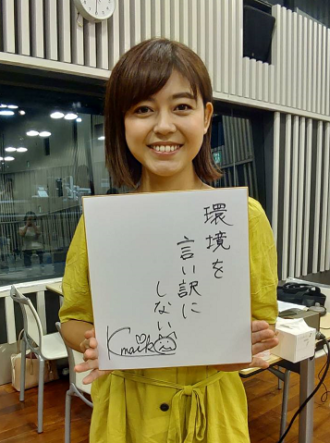 環境を
言い訳に
しない
Kmaiko